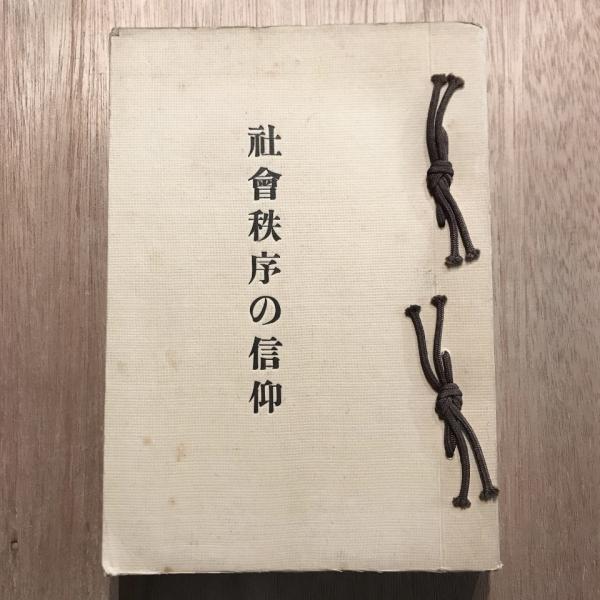 社會秩序の信仰